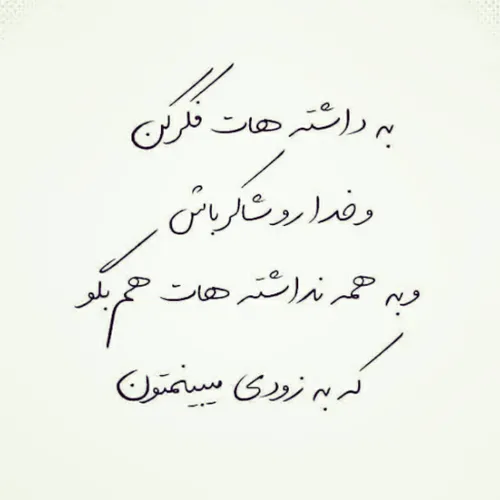 به داشته هات فکر کن
و خدا رو شاکر باش
و به همه نداشته هات هم بگو
که به زودی میبینمتون